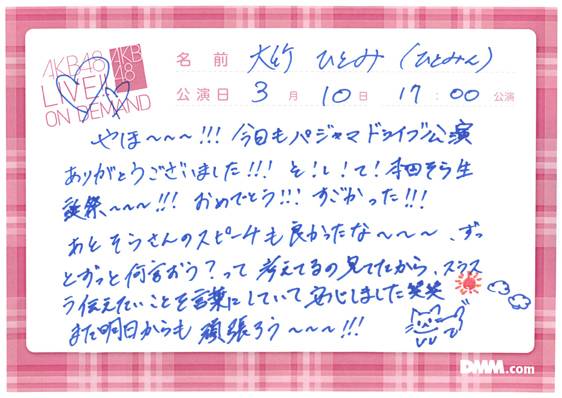 AKB48
LIVE!!
ON DEMAND
AKB
48
名前 大竹 ひとみ (ひとみん)
公演日 3月10日 17:00 公演
やほ〜〜〜!!! 今日もパジャマドライブ公演
ありがとうございました!!! そ!し!て!本田そら生
誕祭〜〜〜!!! おめでとう!!! すごかった!!!
あと そらさんのスピーチも良かったな〜〜〜、ずっ
とずっと何言おう?って 考えてるの見てたから、スラスラ
伝えたいことを言葉にしていて 安心しました笑笑
また明日からも 頑張ろう〜〜〜!!!
DMM.com